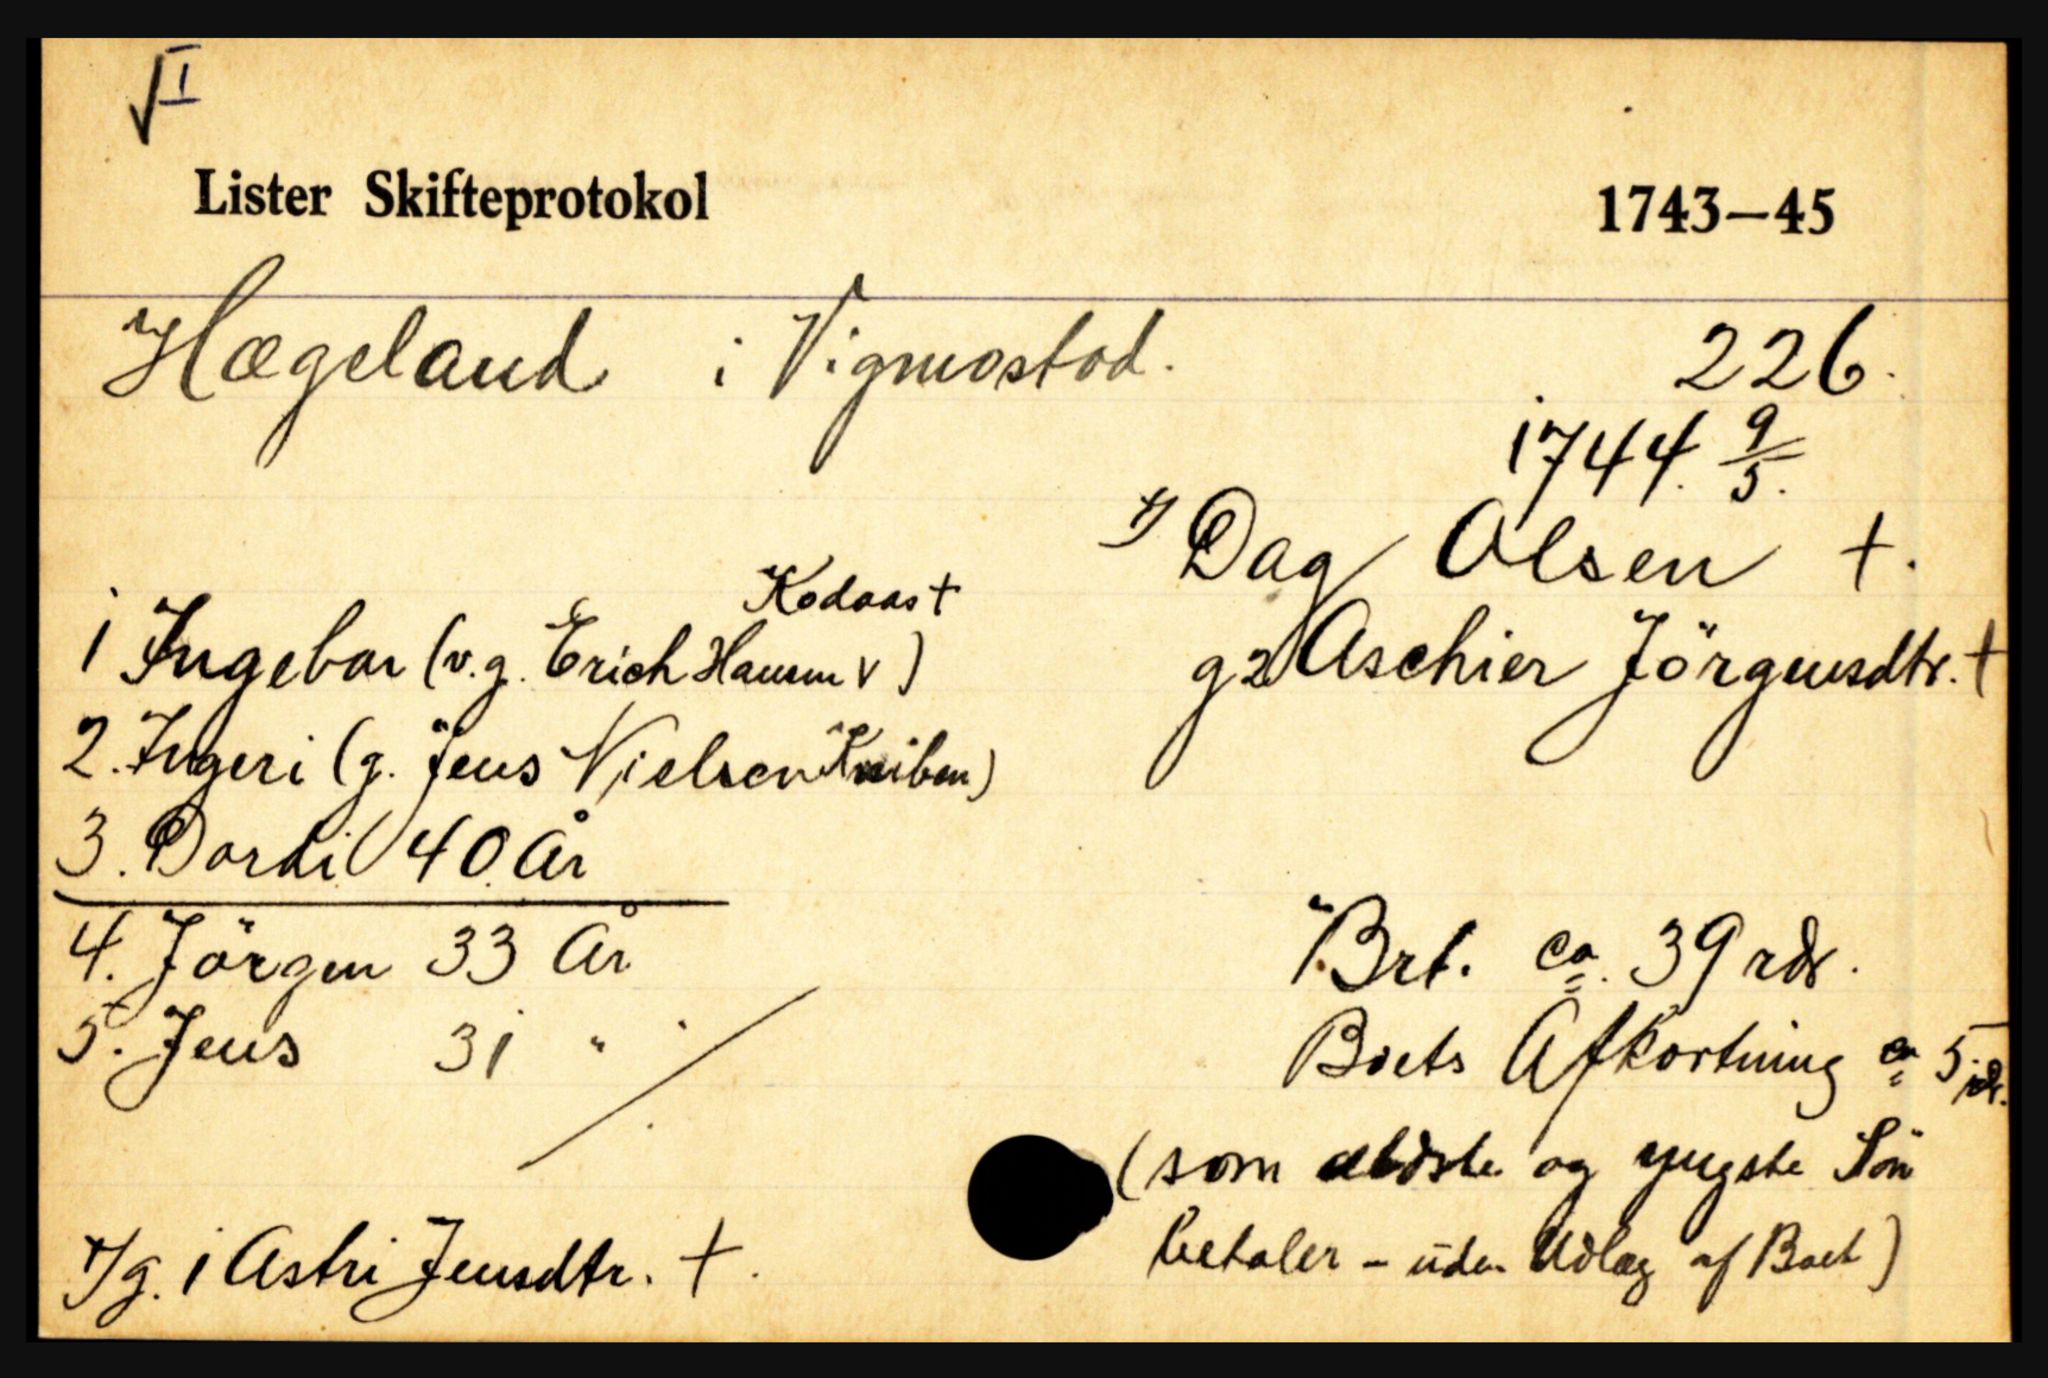 √I
Lister Skifteprotokol 1743–45
Hægeland i Vigmostad. 226.
1744. 9/5.
*/ Dag Olsen †.
g2 Aschier Jörgensdtr. †
Kodaas †
1 Ingebor (v.g. Erich Hansen v)
2. Ingeri (g. Jens Nielsen Kniben)
3. Dordi 40 År
4. Jörgen 33 År
5. Jens 31 "
*/g. 1 Astri Jensdtr. †.
Brt. ca. 39 rdr.
Boets Afkortning ca 5 rdr.
(som ældste og yngste Sön
betaler – uden Udlæg af Boet)